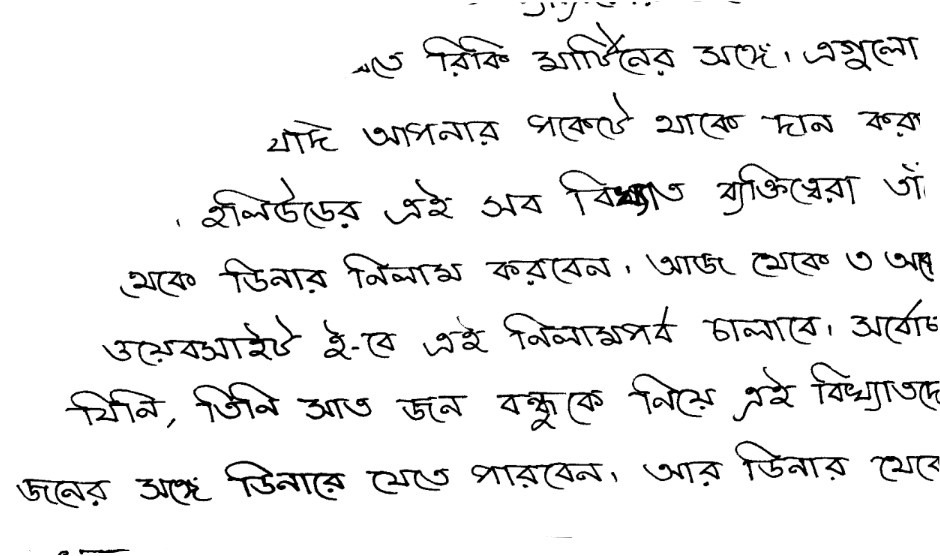 রিকি মার্টিনের সঙ্গে। এগুলো
যদি আপনার পকেটে থাকে দান
হলিউডের এই সব বিখ্যাত ব্যক্তিত্বেরা
থেকে ডিনার নিলাম করবেন। আজ থেকে ৩
ওয়েবসাইট ই-বে এই নিলামপর্ব চালাবে।
যিনি, তিনি সাত জন বন্ধুকে নিয়ে এই
জনের সঙ্গে ডিনারে যেতে পারবেন। আর ডিনার